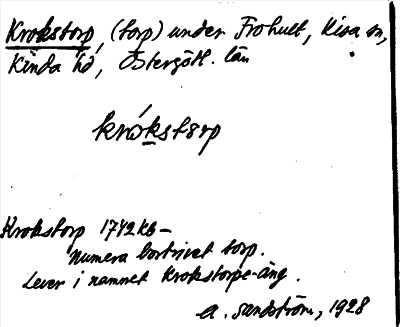 Krokstorp, (torp) under Frohult, Kisa sn,
Kinda hd, Östergötl. län
krókstorp
Krokstorp 1742 kb –
Numera bortrivet torp.
Lever i namnet Krokstorpe-äng.
A. Sandström, 1928